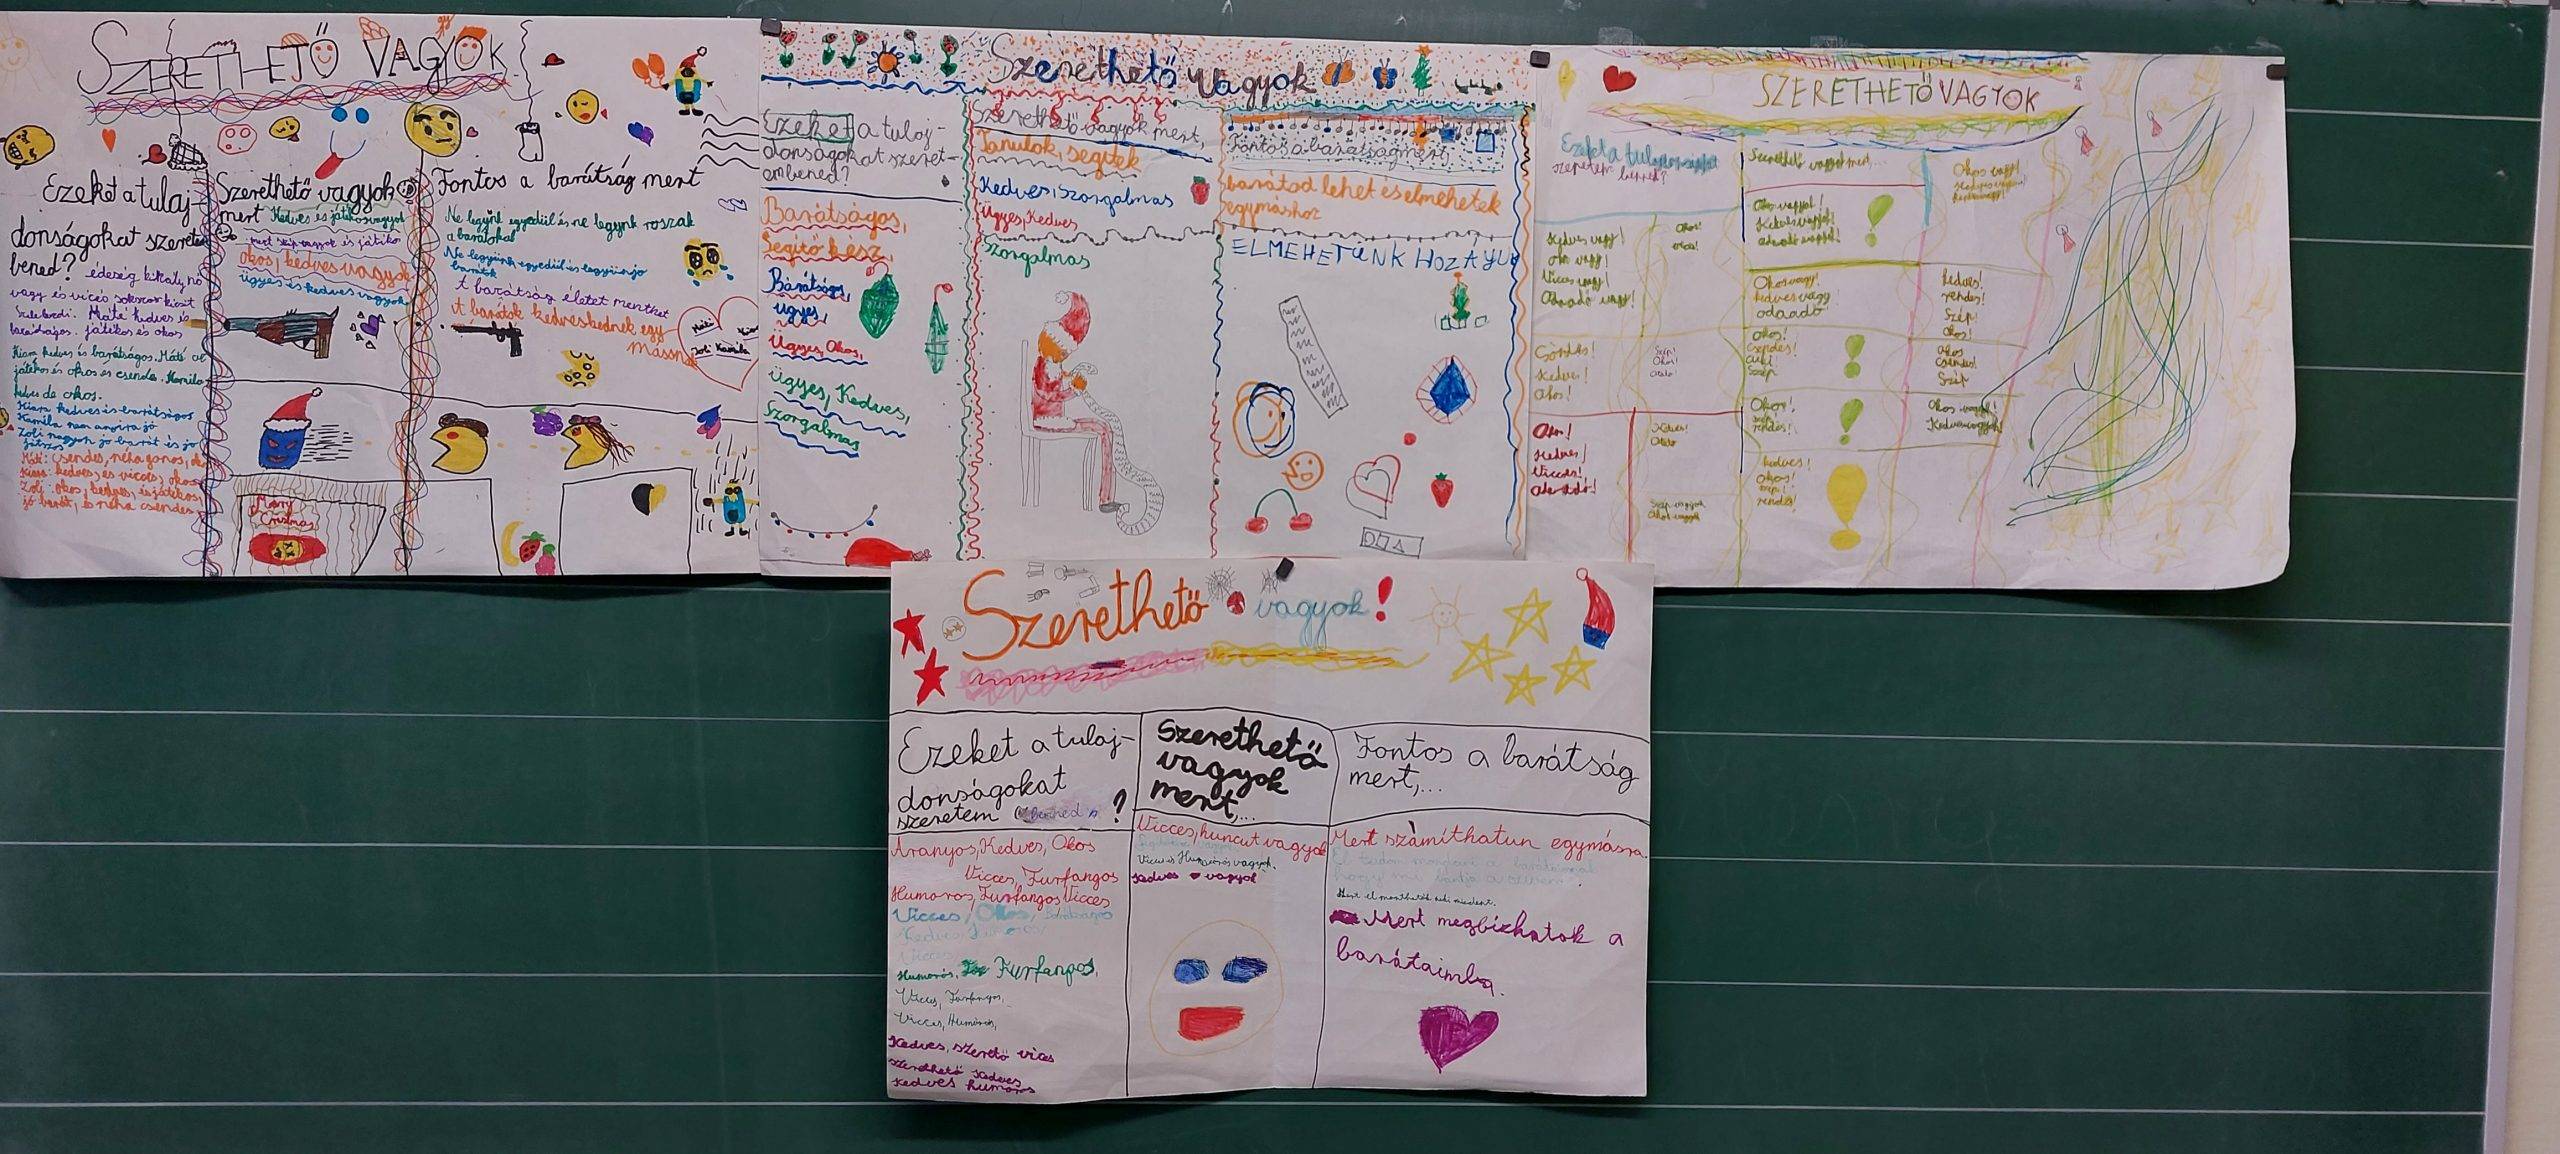 SZERETHETŐ VAGYOK
Ezeket a tulaj-
donságokat szeretem
bened?
édeség király nő
vagy és vicéó sokszor
Máté kedves és
barátságos. játékos és okos
Kiara kedves és barátságos. Máté
játékos és okos és csendes. Kamilla
kedves de okos.
Kiara kedves és barátságos
Kamila nem anyira jó
Zoli nagyon jó barát és jó
játszos
Máti: csendes, néha gonos,
Kiara: kedves, és vicces, okos
Zoli: okos, kedves, és játékos,
jó barát, és néha csendes.
Szerethető vagyok
mert Kedves és játékos vagyok
mert szép vagyok és játékos
okos, kedves vagyok
ügyes és kedves vagyok
Merry
Cristmas
Fontos a barátság mert
Ne legyünk egyedül és ne legynk roszak
a barátokal
Ne legyünk egyedül és legyünk jo
barátok
A barátság életet menthet
A barátok kedveskednek egy
másnak
Máti Kiara
Zoli Kamila
Szerethető vagyok
Ezeket a tulaj-
donságokat szeret-
em bened?
Barátságos,
Segítő kész,
Barátságos,
ügyes,
Ügyes, Okos,
ügyes, Kedves,
Szorgalmas
Szerethető vagyok mert,
Tanulok, segitek
Kedves, Szorgalmas
Ügyes, Kedves
Szorgalmas
Fontos a barátság mert,
barátod lehet és elmehetek
egymáshoz
ELMEHETÜNK HOZÁJUK
SZERETHETŐ VAGYOK
Ezeket a tulajdonságokat
szeretem benned?
Kedves vagy!
oks vagy!
Vicces vagy!
Odaadó vagy!
Okos!
vicces!
Kedves!
Okos!
Szép!
Okos!
Okos!
Kedves!
Vicces!
Odaadó!
Kedves!
Szép vagyok
Okos vagyok
Szerethető vagyok mert...
Okos vagyok!
Kedves vagyok!
odaadó vagyok!
Okos vagy!
kedves vagy!
odaadó!
Okos!
csendes!
cuki
szép
Okos!
szép!
rendes!
kedves!
okos!
szép!
rendes!
Okos vagy!
kedves!
rendes!
Szép!
Okos!
okos
csendes!
Szép
Okos vagyok!
Kedves vagyok!
Szerethető vagyok!
Ezeket a tulaj-
donságokat
szeretem benned?
Aranyos, Kedves, Okos
Vicces, Furfangos
Humoros, Furfangos Vicces
Vicces, Okos, Barátságos
Kedves, Humoros,
Vicces
Humorós, Furfangos,
Vicces, Furfangos,
Vicces, Humoros,
Kedves, szerető vices
szerethető Kedves
Kedves humoros
Szerethető
vagyok
mert,...
Vicces, huncut vagyok
Vicces és Humorós vagyok.
Kedves vagyok
Fontos a barátság
mert,...
Mert számíthatun egymásra.
El tudom mondani a barátaimnak
hogy mi bántja a szivem.
Mert el monthatok neki mindent.
Mert megbízhatok a
barátaimba.